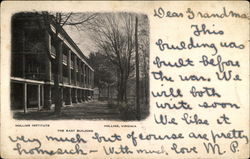 Dear Grandma
This
building was
built before
the war. We
will both
write soon
We like it
very much but of course are pretty
homesick – With much love M. P.
HOLLINS INSTITUTE
HOLLINS, VIRGINIA
THE EAST BUILDING